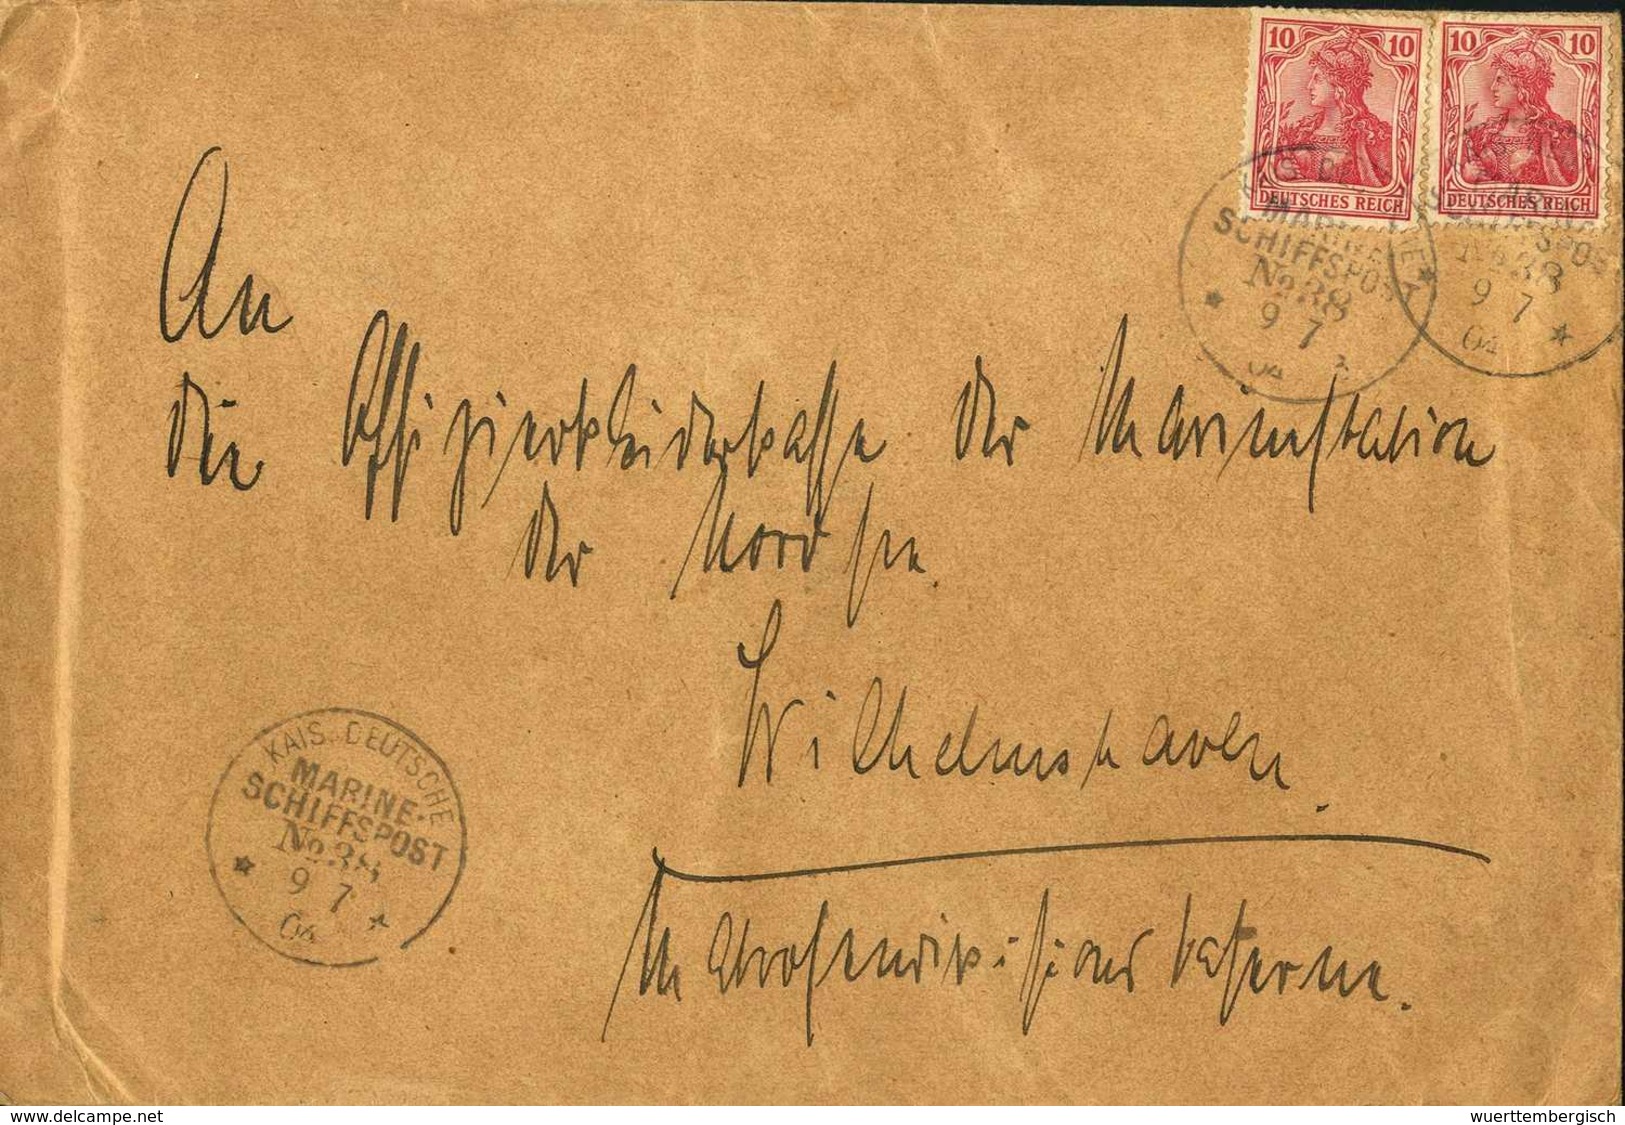 10 10
DEUTSCHES REICH
10 10
DEUTSCHES REICH
MARINE-
SCHIFFSPOST
No 38
9 7
04
MARINE-
SCHIFFSPOST
No 38
9 7
04
An
die Offizierkleiderkasse der Marinestation
der Nordsee.
Wilhelmshaven.
Matrosendivisions Kaserne.
KAIS. DEUTSCHE
MARINE-
SCHIFFSPOST
No 38
9 7
04
www.delcampe.net
wuerttembergisch